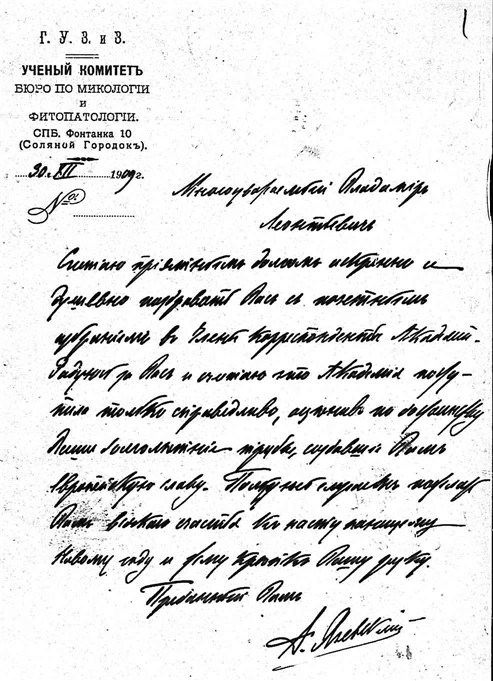 1
Г. У. З. и З.
УЧЕНЫЙ КОМИТЕТЪ
БЮРО ПО МИКОЛОГІИ
И
ФИТОПАТОЛОГІИ.
СПБ. Фонтанка 10
(Соляной Городокъ).
30 XII 1909 г.
№
Многоуважаемый Владиміръ
Леонтьевичъ
Считаю пріятнымъ долгомъ искренно и
душевно поздравить Васъ съ почетнымъ
избраніемъ въ Члены Корреспонденты Академіи.
Радуюсь за Васъ и считаю что Академія посту-
пила только справедливо, оцѣнивъ по достоинству
Ваши долголѣтніе труды, создавшіе Вамъ
Европейскую славу. Пользуюсь случаемъ пожелать
Вамъ всякаго счастья къ наступающему
Новому году и жму крѣпко Вашу руку.
Преданный Вамъ
А. Ячевскій